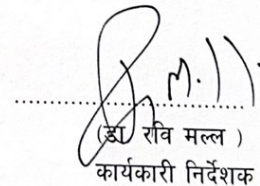 (डा रवि मल्ल )
कार्यकारी निर्देशक